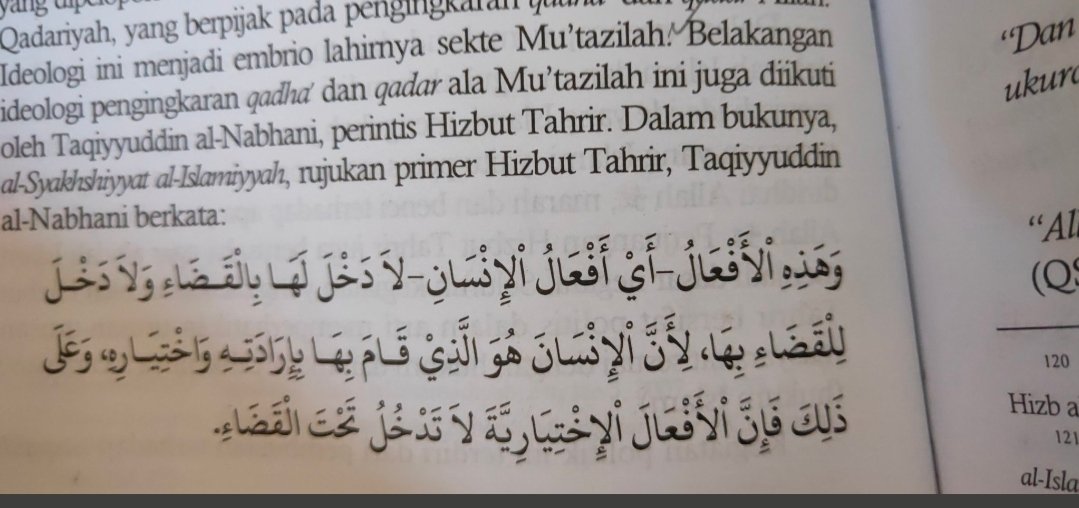 Qadariyah, yang berpijak pada pengingkaran
Ideologi ini menjadi embrio lahirnya sekte Mu'tazilah. Belakangan
ideologi pengingkaran qadha' dan qadar ala Mu'tazilah ini juga diikuti
oleh Taqiyyuddin al-Nabhani, perintis Hizbut Tahrir. Dalam bukunya,
al-Syakhshiyyat al-Islamiyyah, rujukan primer Hizbut Tahrir, Taqiyyuddin
al-Nabhani berkata:
وَهَذِهِ اْلأَفْعَالُ–أَيْ أَفْعَالُ اْلإِنْسَانِ–لاَ دَخْلَ لَهَا بِالْقَضَاءِ وَلاَ دَخْلَ
لِلْقَضَاءِ بِهَا، لِأَنَّ اْلإِنْسَانَ هُوَ الَّذِيْ قَامَ بِهَا بِإِرَادَتِهِ وَاخْتِيَارِهِ، وَعَلَى
ذَلِكَ فَإِنَّ اْلأَفْعَالَ اْلإِخْتِيَارِيَّةَ لاَ تَدْخُلُ تَحْتَ الْقَضَاءِ.
"Dan
"Al
(QS
120
Hizb a
121
al-Isla